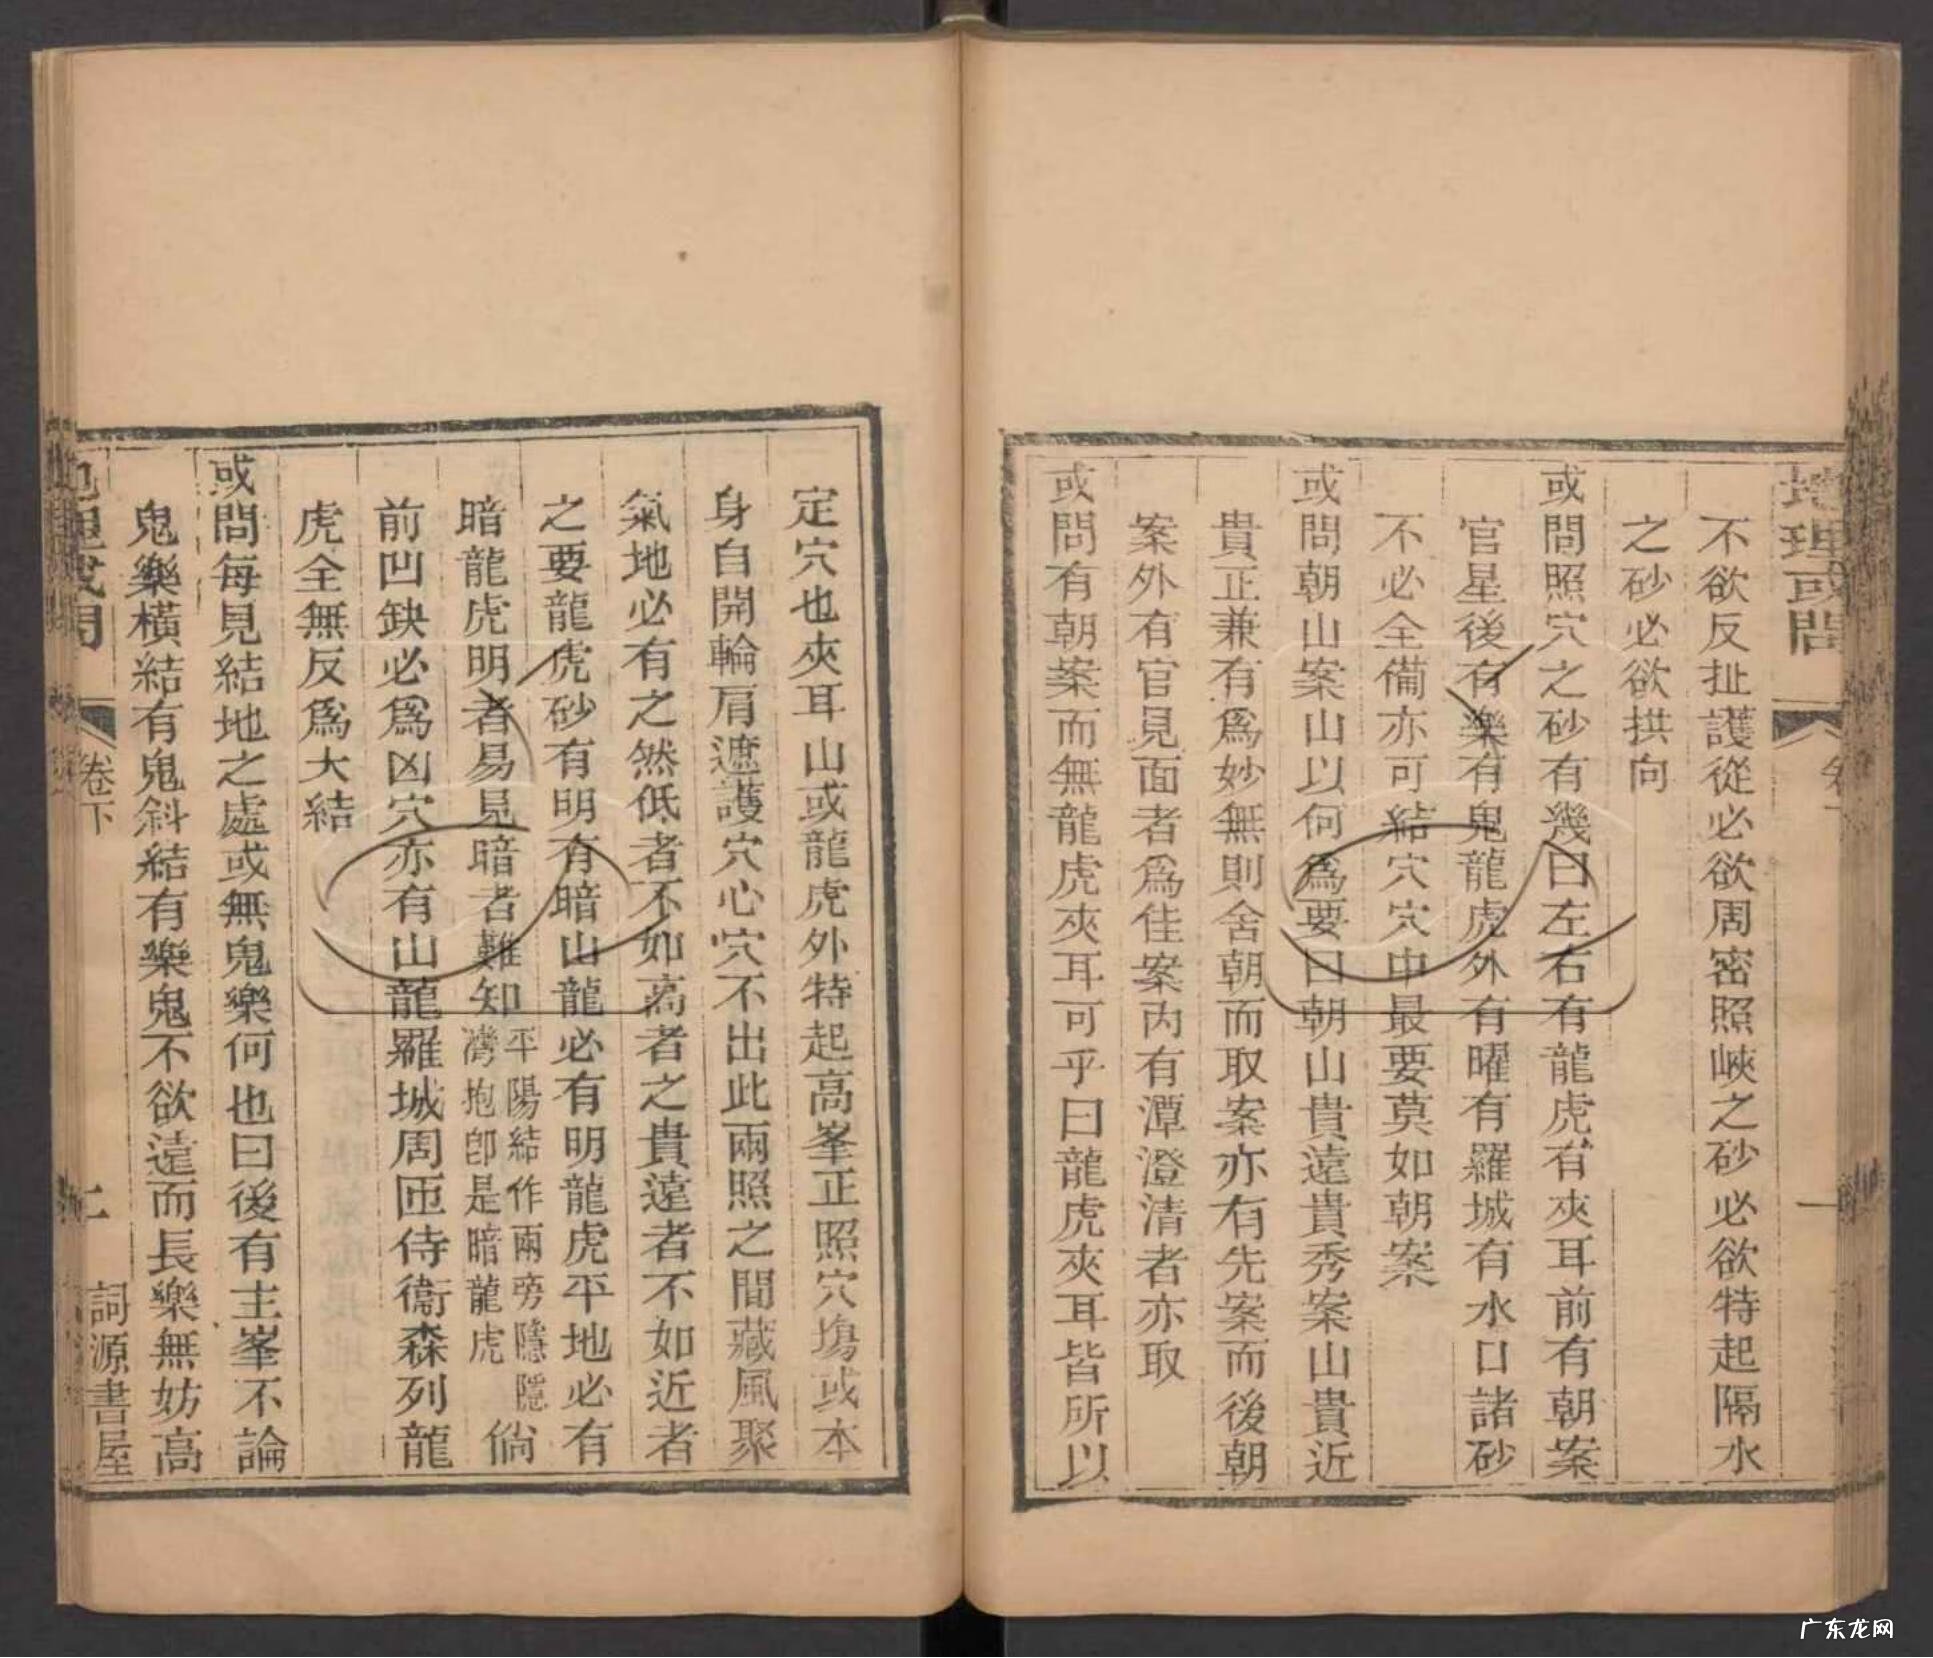 地理或問
不欲反扯護從必欲周密照峽之砂必欲特起隔水
之砂必欲拱向
或問照穴之砂有幾曰左右有龍虎有夾耳前有朝案
官星後有樂有鬼龍虎外有曜有羅城有水口諸砂
不必全備亦可結穴穴中最要莫如朝案
或問朝山案山以何爲要曰朝山貴遠貴秀案山貴近
貴正兼有爲妙無則舍朝而取案亦有先案而後朝
案外有官見面者爲佳案内有潭澄清者亦取
或問有朝案而無龍虎夾耳可乎曰龍虎夾耳皆所以
定穴也夾耳山或龍虎外特起高峯正照穴塲或本
身自開輪肩遮護穴心穴不出此兩照之間藏風聚
氣地必有之然低者不如高者之貴遠者不如近者
之要龍虎砂有明有暗山龍必有明龍虎平地必有
暗龍虎明者易見暗者難知平陽結作兩旁隱隱灣抱卽是暗龍虎倘
前凹缺必爲凶穴亦有山龍羅城周匝侍衞森列龍
虎全無反爲大結
或問每見結地之處或無鬼樂何也曰後有主峯不論
鬼樂橫結有鬼斜結有樂鬼不欲遠而長樂無妨高
地理或問
卷下
二
詞源書屋
广东龙网